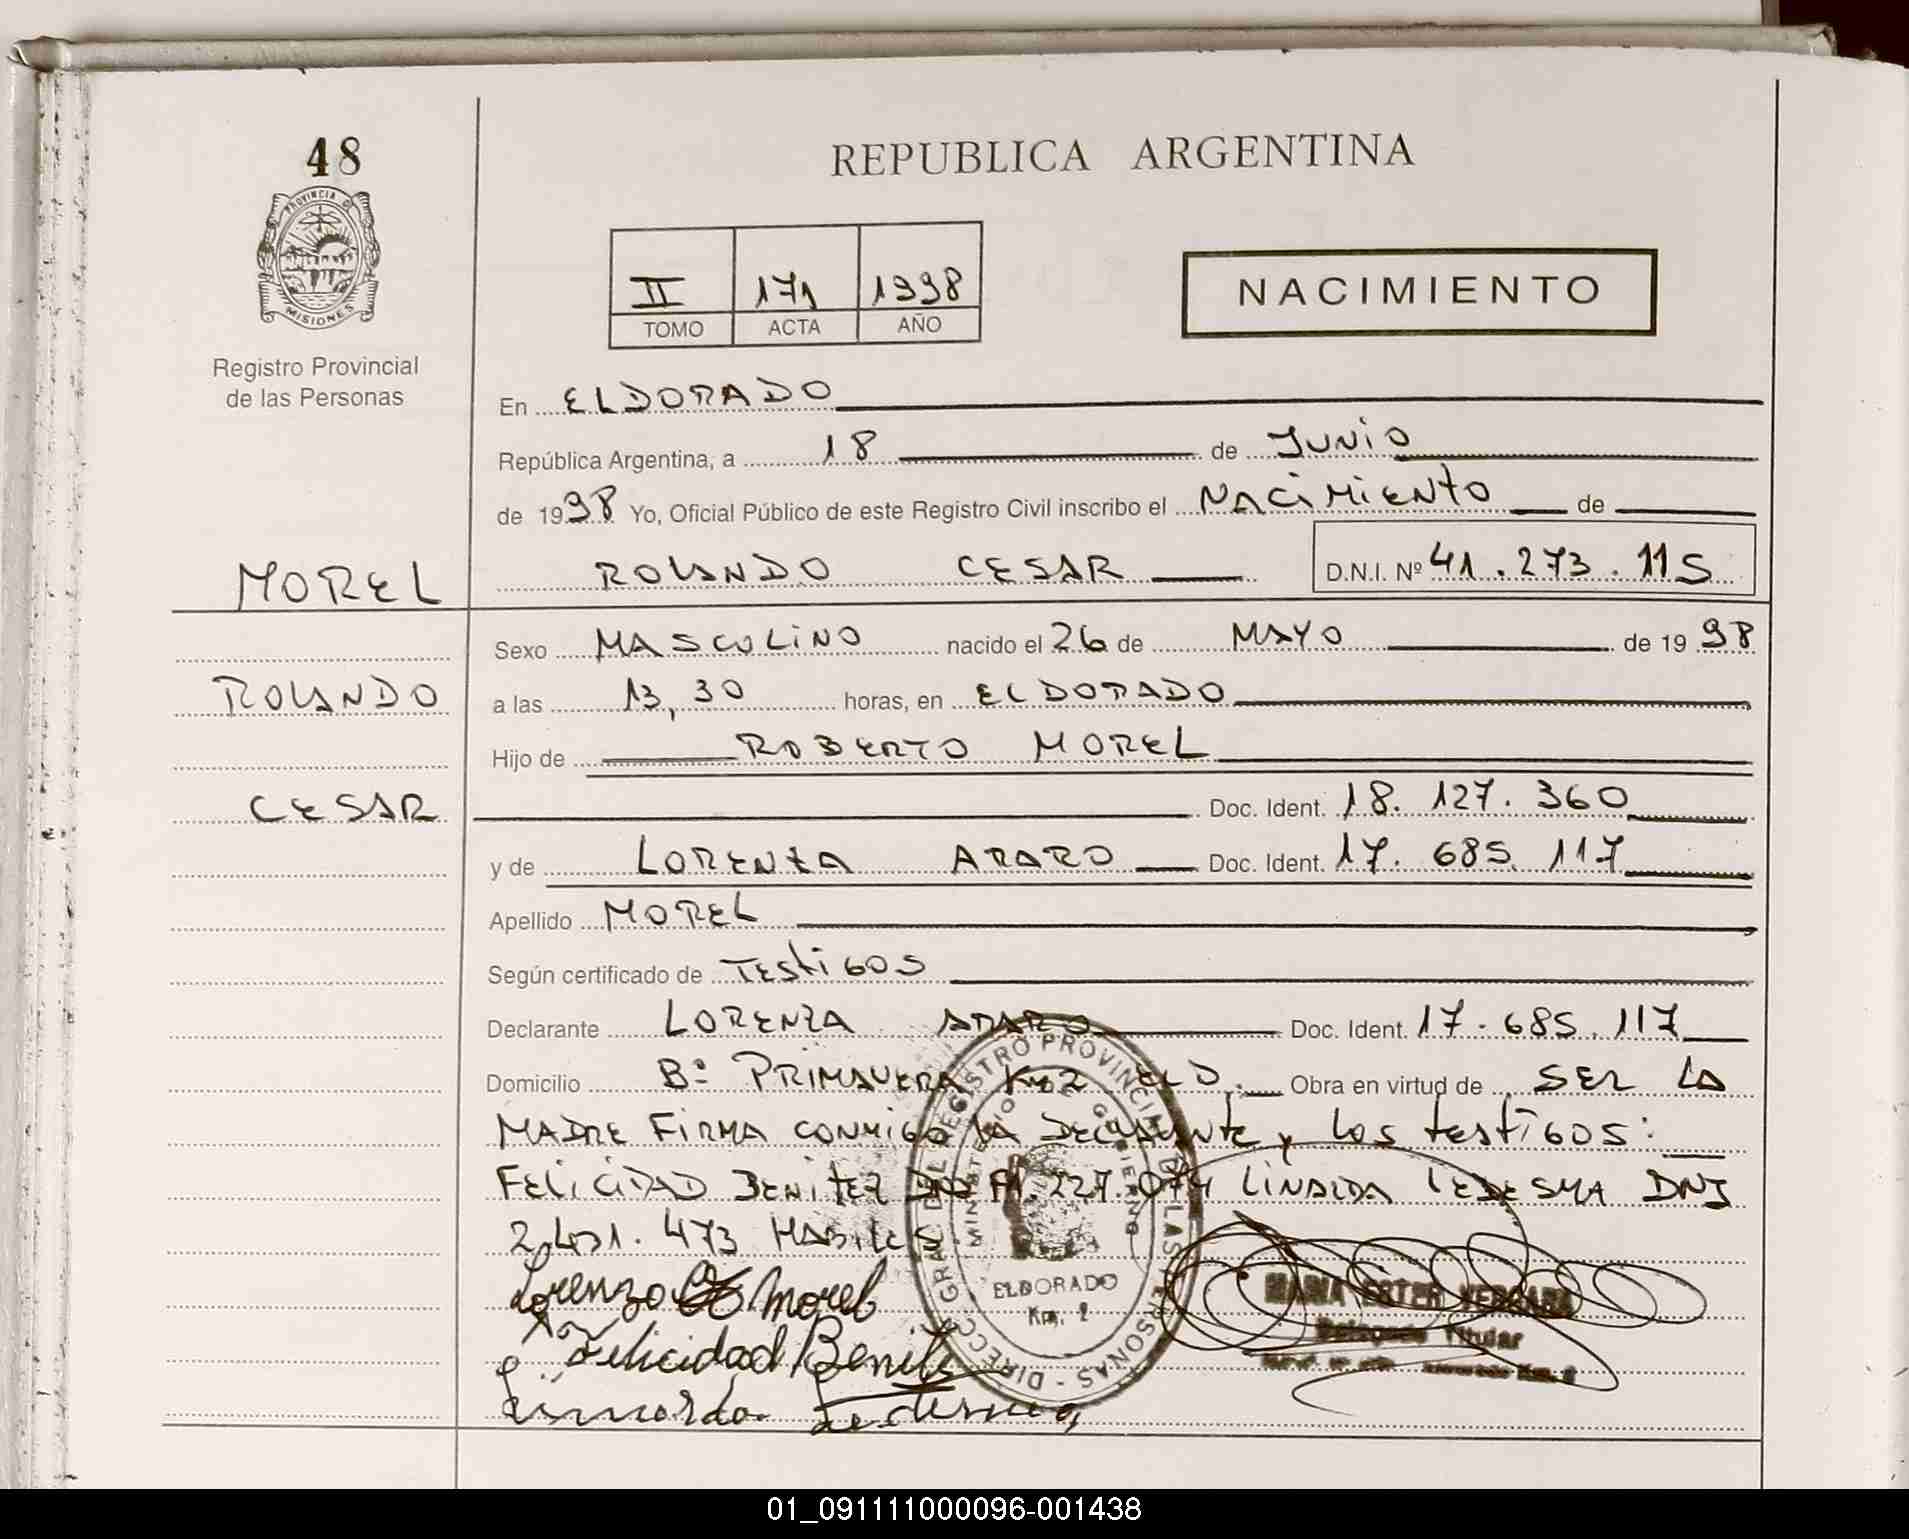 48
PROVINCIA D
MISIONES
Registro Provincial
de las Personas
REPUBLICA ARGENTINA
II 171 1998
TOMO ACTA AÑO
NACIMIENTO
En ELDORADO
República Argentina, a 18 de JUNIO
de 1998 Yo, Oficial Público de este Registro Civil inscribo el NACIMIENTO de
MOREL
ROLANDO CESAR D.N.I. Nº 41.273.115
Sexo MASCULINO nacido el 26 de MAYO de 1998
ROLANDO
a las 13,30 horas, en ELDORADO
Hijo de ROBERTO MOREL
CESAR
Doc. Ident. 18.127.360
y de LORENZA Doc. Ident. 17.685.117
Apellido MOREL
Según certificado de TESTIGOS
Declarante LORENZA Doc. Ident. 17.685.117
Domicilio Bº PRIMAVERA Km 2 ELD. Obra en virtud de SER LA
MADRE FIRMA CONMIGO LA DECLARANTE y LOS TESTIGOS:
FELICIDAD BENITEZ LEDESMA DNI
473
Morel
Felicidad Benitez
DIRECC. GRAL. DEL REGISTRO PROVINCIAL DE LAS PERSONAS
MINISTERIO DE GOBIERNO
ELDORADO
Km. 2
MARIA ESTER VERGARA
Titular
01_091111000096-001438